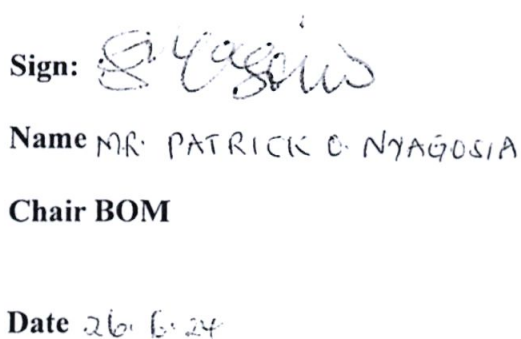 Sign:
Name MR. PATRICK O. NYAGOSIA
Chair BOM
Date 26. 6. 24